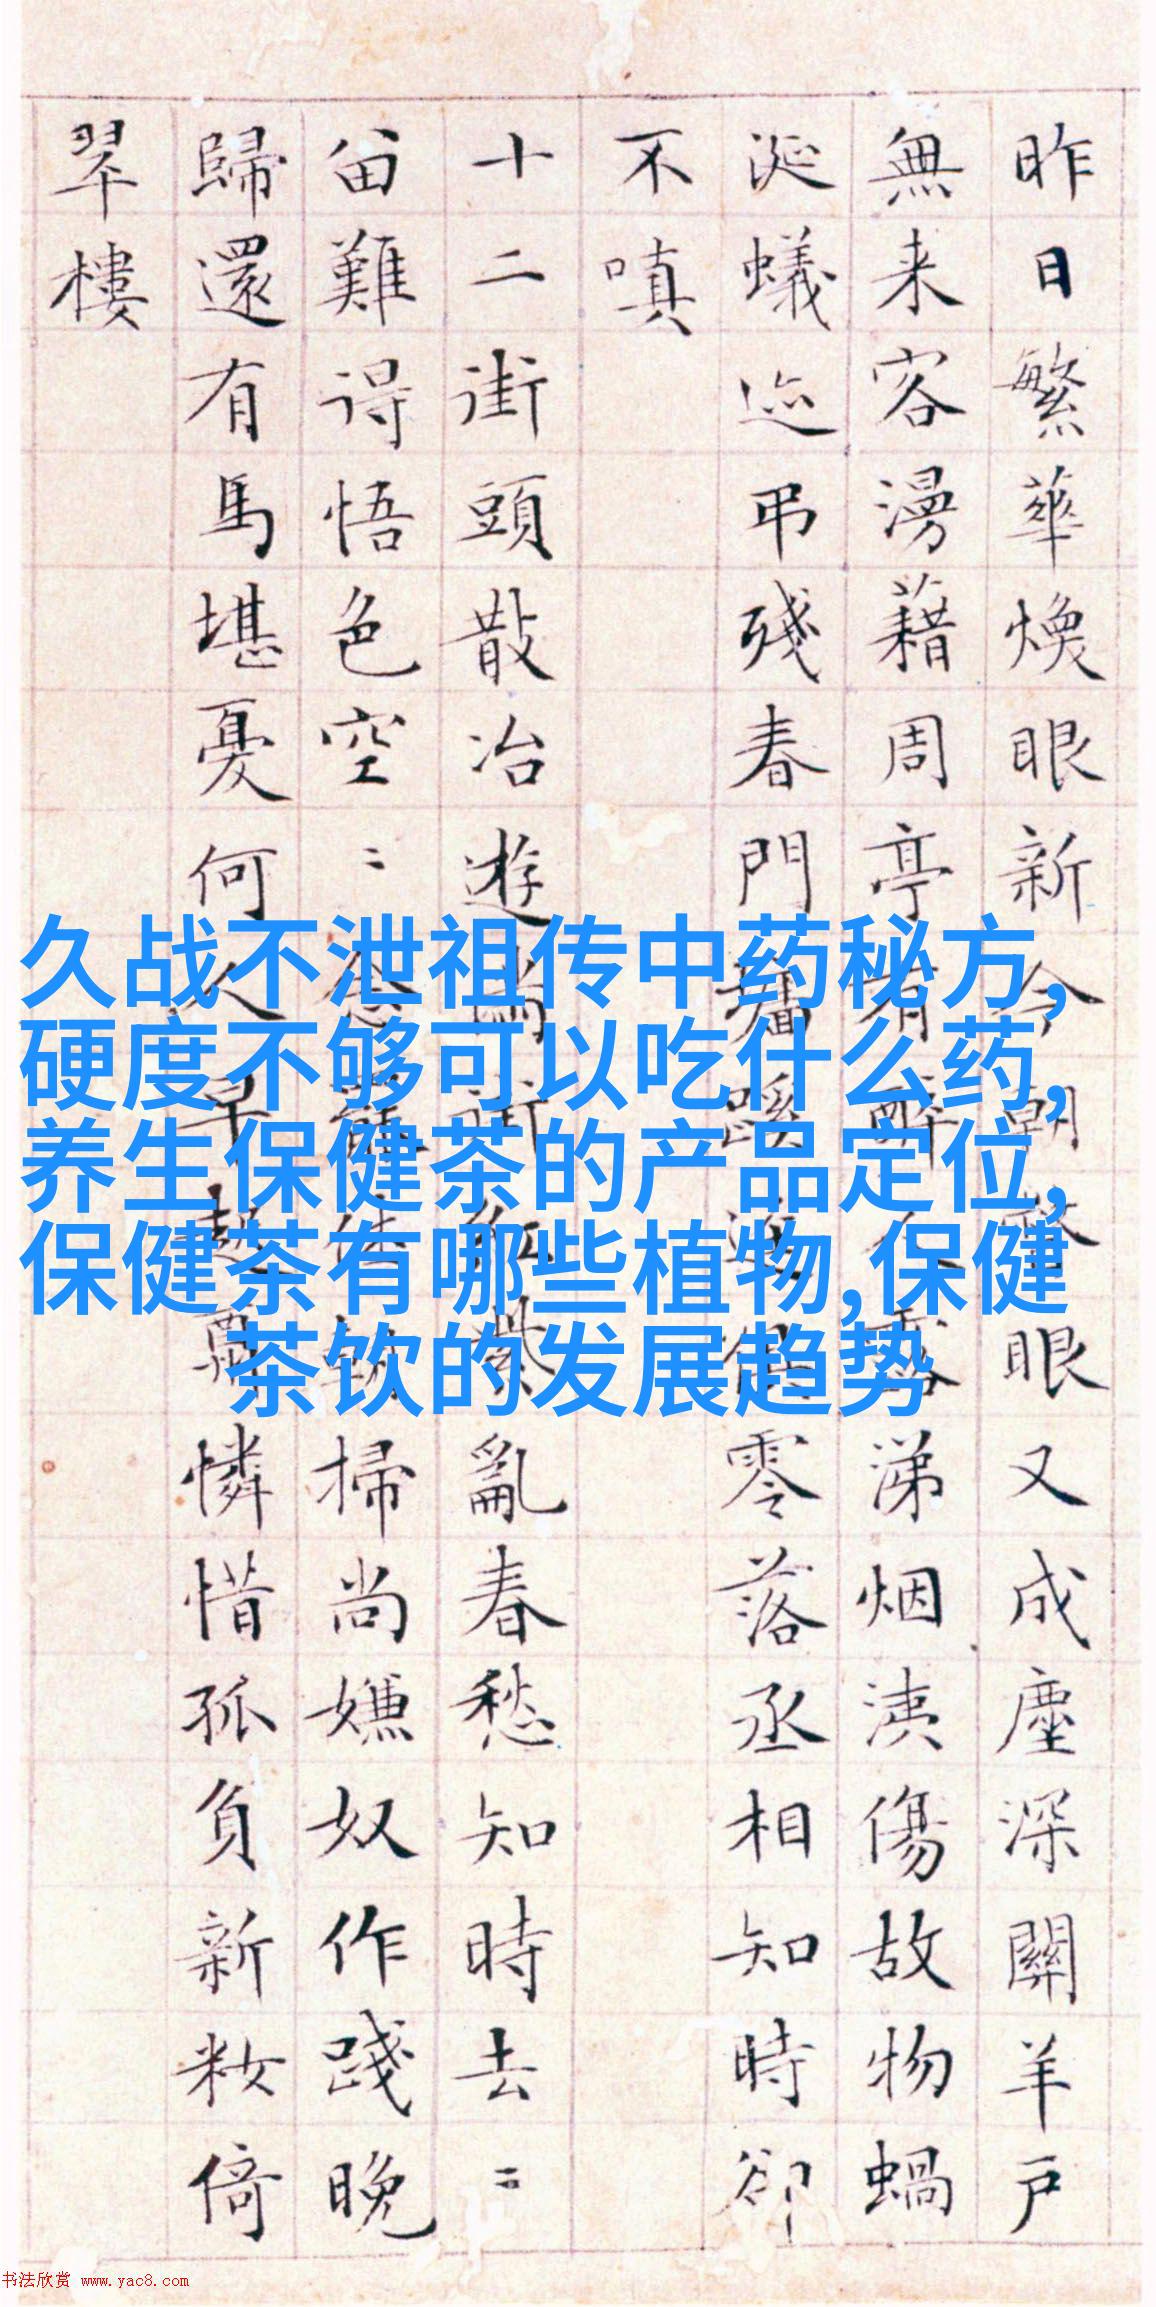 昨日繁華煥眼新今朝
眼又成塵深關羊戶
無来客漫藉周亭有醉人露
涕烟洟傷故物蝸
涎蟻迹弔残春門
零落丞相知時卻
不嗔
十二街頭散冶遊
亂春愁知時去〻
留難得悟色空〻
掃尚嫌奴作踐晚
歸還有馬堪憂何人早
憐惜孤負新妝倚
翠樓
久战不泄祖传中药秘方,
硬度不够可以吃什么药,
养生保健茶的产品定位,
保健茶有哪些植物,保健
茶饮的发展趋势
书法欣赏 www.yac8.com